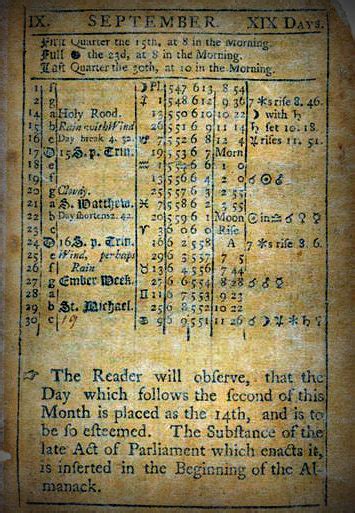 IX. SEPTEMBER. XIX Days.
First Quarter the 15th, at 8 in the Morning.
Full ● the 23d, at 8 in the Morning.
Last Quarter the 30th, at 10 in the Morning.
1 f
2 g 1 5 48 6 12 9 36 7 *s rise 8. 46.
14 a Holy Rood. 13 5 50 6 10 10 22 ☽ with ♄
15 b Rain with Wind 26 5 51 6 9 11 14 ♄ set 10. 18.
16 c Day break 4. 5 52 6 8 12 4 rises 11. 51.
17 15 S. p. Trin. 19 5 53 6 7 Morn
18 e
19 f 13 5 56 6 4 2 0
20 g Cloudy. 25 5 57 6 3 2 55
21 a S. Matthew. 7 5 58 6 2
22 b Day shortens 2. 42. 20 5 59 6 1 Moon
23 c 3 6 0 6 0 Rise
24 16 S. p. Trin. 16 6 2 5 58 A 7 *s rise 8. 6.
25 e Wind, perhaps 29 6 3 5 57 7 5
26 f Rain ♉ 13 6 4 5 56 7 44
27 g Ember Week. 27 6 6 5 54 8 28
28 a ♊ 11 6 7 5 53 9 23
29 b St. Michael. 25 6 8 5 52 10 22
30 c 9 6 9 5 51 11 26
☞ The Reader will observe, that the
Day which follows the second of this
Month is placed as the 14th, and is to
be so esteemed. The Substance of the
late Act of Parliament which enacts it,
is inserted in the Beginning of the Al-
manack.